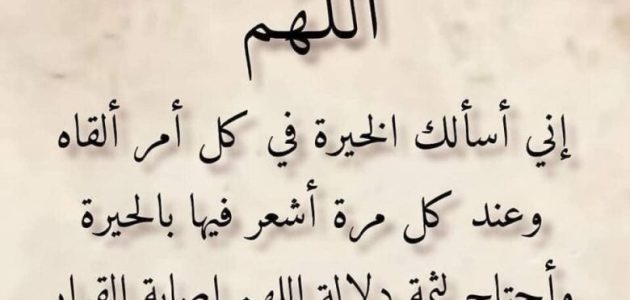 اللهم
إني أسألك الخيرة في كل أمر ألقاه
وعند كل مرة أشعر فيها بالحيرة
وأحتاج لثمة دلالة اللهم إصابة القرار